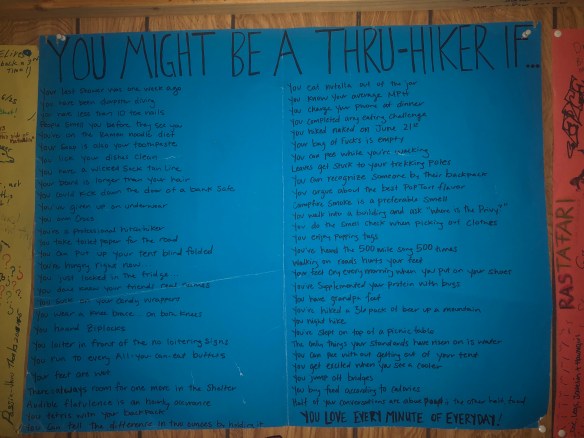 YOU MIGHT BE A THRU-HIKER IF...
Your last shower was one week ago
You have less than 10 toe nails
People smell you before they see you
You're on the Ramen noodle diet
You lick your dishes clean
You have a wicked sock tan line
Your beard is longer than your hair
You could kick down the door of a bank safe
You've given up on underwear
You own Crocs
You're a professional hitchhiker
You take toilet paper for the road
You can put up your tent blind folded
You're hungry right now
You just looked in the fridge
You don't know your friends real names
You wear a knee brace... on both knees
You hoard Ziplocs
You loiter in front of the no loitering signs
You run to every All-you-can-eat buffet
Your feet are wet
There's always room for one more in the Shelter
Audible flatulence is an hourly occurance
You tetris with your backpack
You eat nutella out of the jar
You know your average MPH
You charge your phone at dinner
You completed any eating challenge
You hiked naked on June 21st
Your bag of fucks is empty
You can pee while you're walking
Leaves get stuck to your trekking poles
You can recognize someone by their backpack
You argue about the best PopTart flavor
Campfire smoke is a preferable smell
You walk into a building and ask "Where is the Privy?"
You do the smell check when picking out clothes
You enjoy popping tags
You've heard the 500 mile song 500 times
Walking on roads hurts your feet
Your feet cry every morning when you put on your shoes
You've supplemented your protein with bugs
You've hiked a 30 pack of beer up a mountain
You night hike
You've slept on top of a picnic table
The only things your standards have risen on is water
You can pee with out getting out of your tent
You get excited when you see a cooler
You jump off bridges
You buy food according to calories
Half of your conversations are about poop & the other half food
YOU LOVE EVERY MINUTE OF EVERYDAY!
RASTAFARI